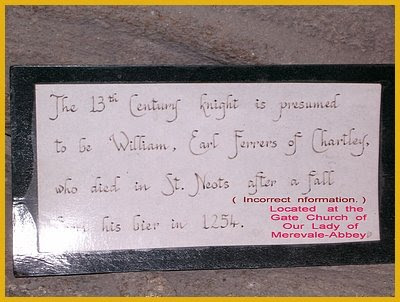 The 13th Century knight is presumed
to be William, Earl Ferrers of Chartley,
who died in St. Neots after a fall
( Incorrect nformation. )
his bier in 1254.
Located at the
Gate Church of
Our Lady of
Merevale-Abbey